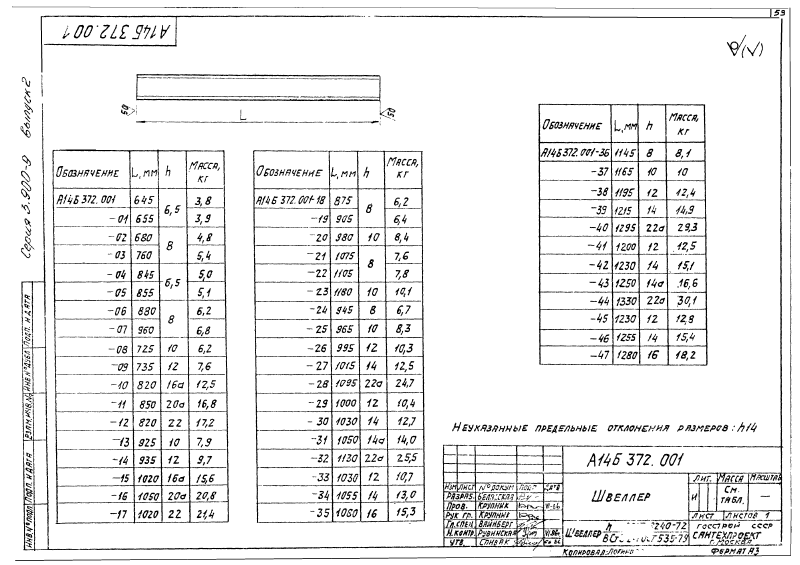 59
А14Б 372.001
Серия 5.900-9 Выпуск 2
50
L
50
Обозначение L, мм h Масса, кг
А14Б 372.001 645 6,5 3,8
-01 655 3,9
-02 680 8 4,8
-03 760 5,4
-04 845 6,5 5,0
-05 855 5,1
-06 880 8 6,2
-07 960 6,8
-08 725 10 6,2
-09 735 12 7,6
-10 820 16а 12,5
-11 850 20а 16,8
-12 820 22 17,2
-13 925 10 7,9
-14 935 12 9,7
-15 1020 16а 15,6
-16 1050 20а 20,8
-17 1020 22 21,4
Обозначение L, мм h Масса, кг
А14Б 372.001-18 875 8 6,2
-19 905 6,4
-20 980 10 8,4
-21 1075 8 7,6
-22 1105 7,8
-23 1180 10 10,1
-24 945 8 6,7
-25 965 10 8,3
-26 995 12 10,3
-27 1015 14 12,5
-28 1095 22а 24,7
-29 1000 12 10,4
-30 1030 14 12,7
-31 1050 14а 14,0
-32 1130 22а 25,5
-33 1030 12 10,7
-34 1055 14 13,0
-35 1080 16 15,3
Обозначение L, мм h Масса, кг
А14Б 372.001-36 1145 8 8,1
-37 1165 10 10
-38 1195 12 12,4
-39 1215 14 14,9
-40 1295 22а 29,3
-41 1200 12 12,5
-42 1230 14 15,1
-43 1250 14а 16,6
-44 1330 22а 30,1
-45 1230 12 12,8
-46 1255 14 15,4
-47 1280 16 18,2
Неуказанные предельные отклонения размеров: h14
А14Б 372.001
Швеллер
Лит. Масса Масштаб
И См. табл. —
Лист Листов 1
Изм. Лист № докум. Подп. Дата
Разраб.
Пров. Крупник
Рук. гр. Крупник
Гл. спец. Вайнберг
Н. контр. Рувинская
Утв. Спивак
Швеллер h 8240-72
535-79
Госстрой СССР
Сантехпроект
Москва
Копировал:
Формат А3
Инв. № подл. Подп. и дата Взам. инв. № Инв. № дубл. Подп. и дата